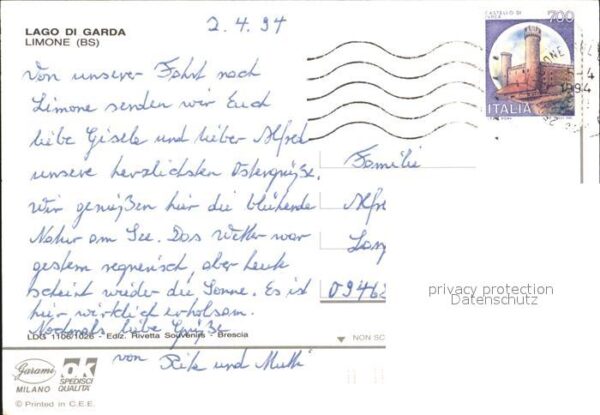 LAGO DI GARDA
LIMONE (BS)
2.4.94
Von unserer Fahrt nach
Limone senden wir Euch
liebe Gisela und lieber Alfred
unsere herzlichsten Ostergrüße.
Wir genießen hier die blühende
Natur am See. Das Wetter war
gestern regnerisch, aber heute
scheint wieder die Sonne. Es ist
hier wirklich erholsam.
Nochmals liebe Grüße
von Rita und Mutti
CASTELLO DI
IVREA
700
ITALIA
1994
Familie
Alfre
Lan
0946
privacy protection
Datenschutz
LDG 1106/1026 - Ediz. Rivetta Souvenirs - Brescia
NON SC
Garami
MILANO
OK
SPEDISCI
QUALITA'
© Printed in C.E.E.